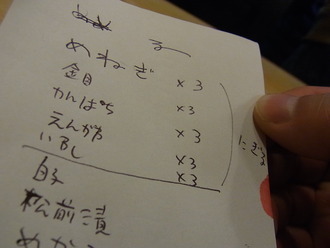 めねぎ
金目 ×3
かんぱち ×3
えんがわ ×3
いわし ×3
白子 ×3
松前漬
めか
にぎり